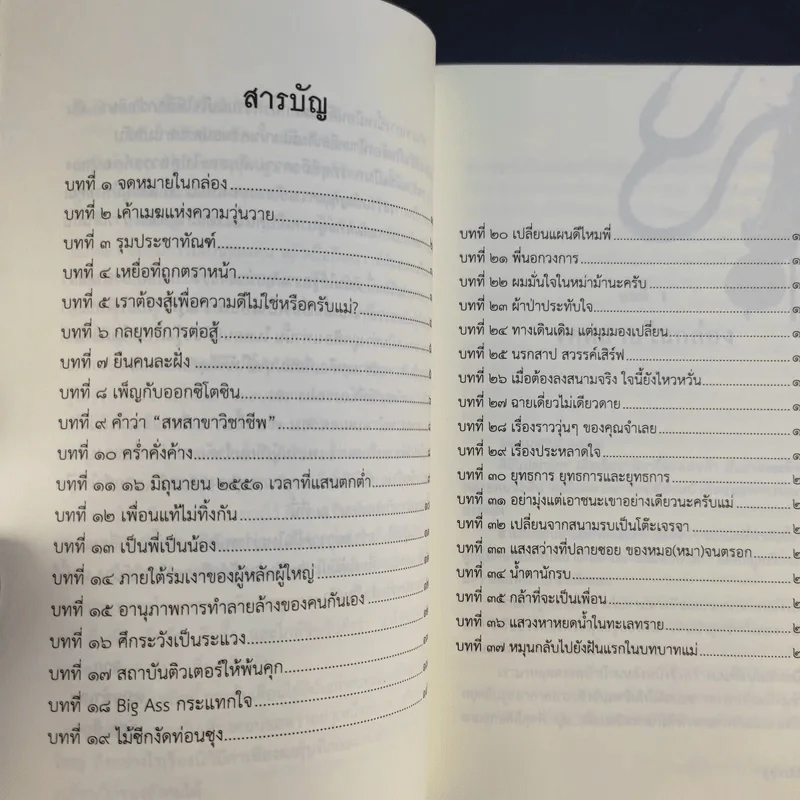 สารบัญ
บทที่ ๑ จดหมายในกล่อง
บทที่ ๒ เค้าเมฆแห่งความวุ่นวาย
บทที่ ๓ รุมประชาทัณฑ์
บทที่ ๔ เหยื่อที่ถูกตราหน้า
บทที่ ๕ เราต้องสู้เพื่อความดีไม่ใช่หรือครับแม่?
บทที่ ๖ กลยุทธ์การต่อสู้
บทที่ ๗ ยืนคนละฝั่ง
บทที่ ๘ เพ็ญกับออกซิโตซิน
บทที่ ๙ คำว่า “สหสาขาวิชาชีพ”
บทที่ ๑๐ คร่ำคั่งค้าง
บทที่ ๑๑ ๑๖ มิถุนายน ๒๕๕๑ เวลาที่แสนตกต่ำ
บทที่ ๑๒ เพื่อนแท้ไม่ทิ้งกัน
บทที่ ๑๓ เป็นพี่เป็นน้อง
บทที่ ๑๔ ภายใต้ร่มเงาของผู้หลักผู้ใหญ่
บทที่ ๑๕ อานุภาพการทำลายล้างของคนกันเอง
บทที่ ๑๖ ศึกระวังเป็นระแวง
บทที่ ๑๗ สถาบันติวเตอร์ให้พ้นคุก
บทที่ ๑๘ Big Ass กระแทกใจ
บทที่ ๑๙ ไม้ซีกงัดท่อนซุง
บทที่ ๒๐ เปลี่ยนแผนดีไหมพี่
บทที่ ๒๑ พี่นอกวงการ
บทที่ ๒๒ ผมมั่นใจในหม่าม้านะครับ
บทที่ ๒๓ ผ้าป่าประทับใจ
บทที่ ๒๔ ทางเดินเดิม แต่มุมมองเปลี่ยน
บทที่ ๒๕ นรกสาป สวรรค์เสิร์ฟ
บทที่ ๒๖ เมื่อต้องลงสนามจริง ใจนี้ยังไหวหวั่น
บทที่ ๒๗ ฉายเดี่ยวไม่เดียวดาย
บทที่ ๒๘ เรื่องราววุ่นๆ ของคุณจำเลย
บทที่ ๒๙ เรื่องประหลาดใจ
บทที่ ๓๐ ยุทธการ ยุทธการและยุทธการ
บทที่ ๓๑ อย่ามุ่งแต่เอาชนะเขาอย่างเดียวนะครับแม่
บทที่ ๓๒ เปลี่ยนจากสนามรบเป็นโต๊ะเจรจา
บทที่ ๓๓ แสงสว่างที่ปลายซอย ของหมอ(หมา)จนตรอก
บทที่ ๓๔ น้ำตานักรบ
บทที่ ๓๕ กล้าที่จะเป็นเพื่อน
บทที่ ๓๖ แสวงหาหยดน้ำในทะเลทราย
บทที่ ๓๗ หมุนกลับไปยังฝันแรกในบทบาทแม่